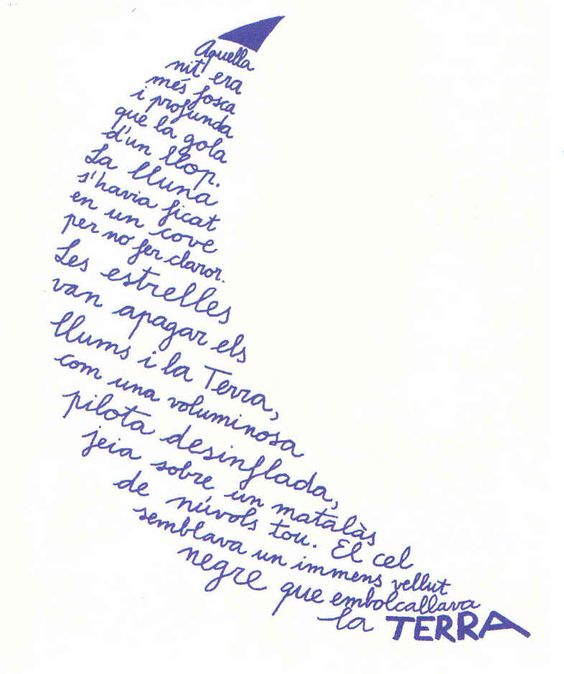 Aquella
nit era
més fosca
i profunda
que la gola
d'un llop.
La lluna
s'havia ficat
en un cove
per no fer claror.
Les estrelles
van apagar els
llums i la Terra,
com una voluminosa
pilota desinflada,
jeia sobre un matalàs
de núvols tou. El cel
semblava un immens vellut
negre que embolcallava
la TERRA